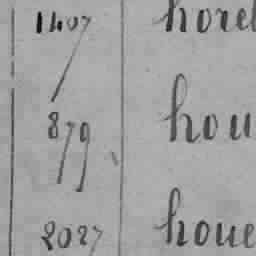 1407 horel
879 hou
2027 houe